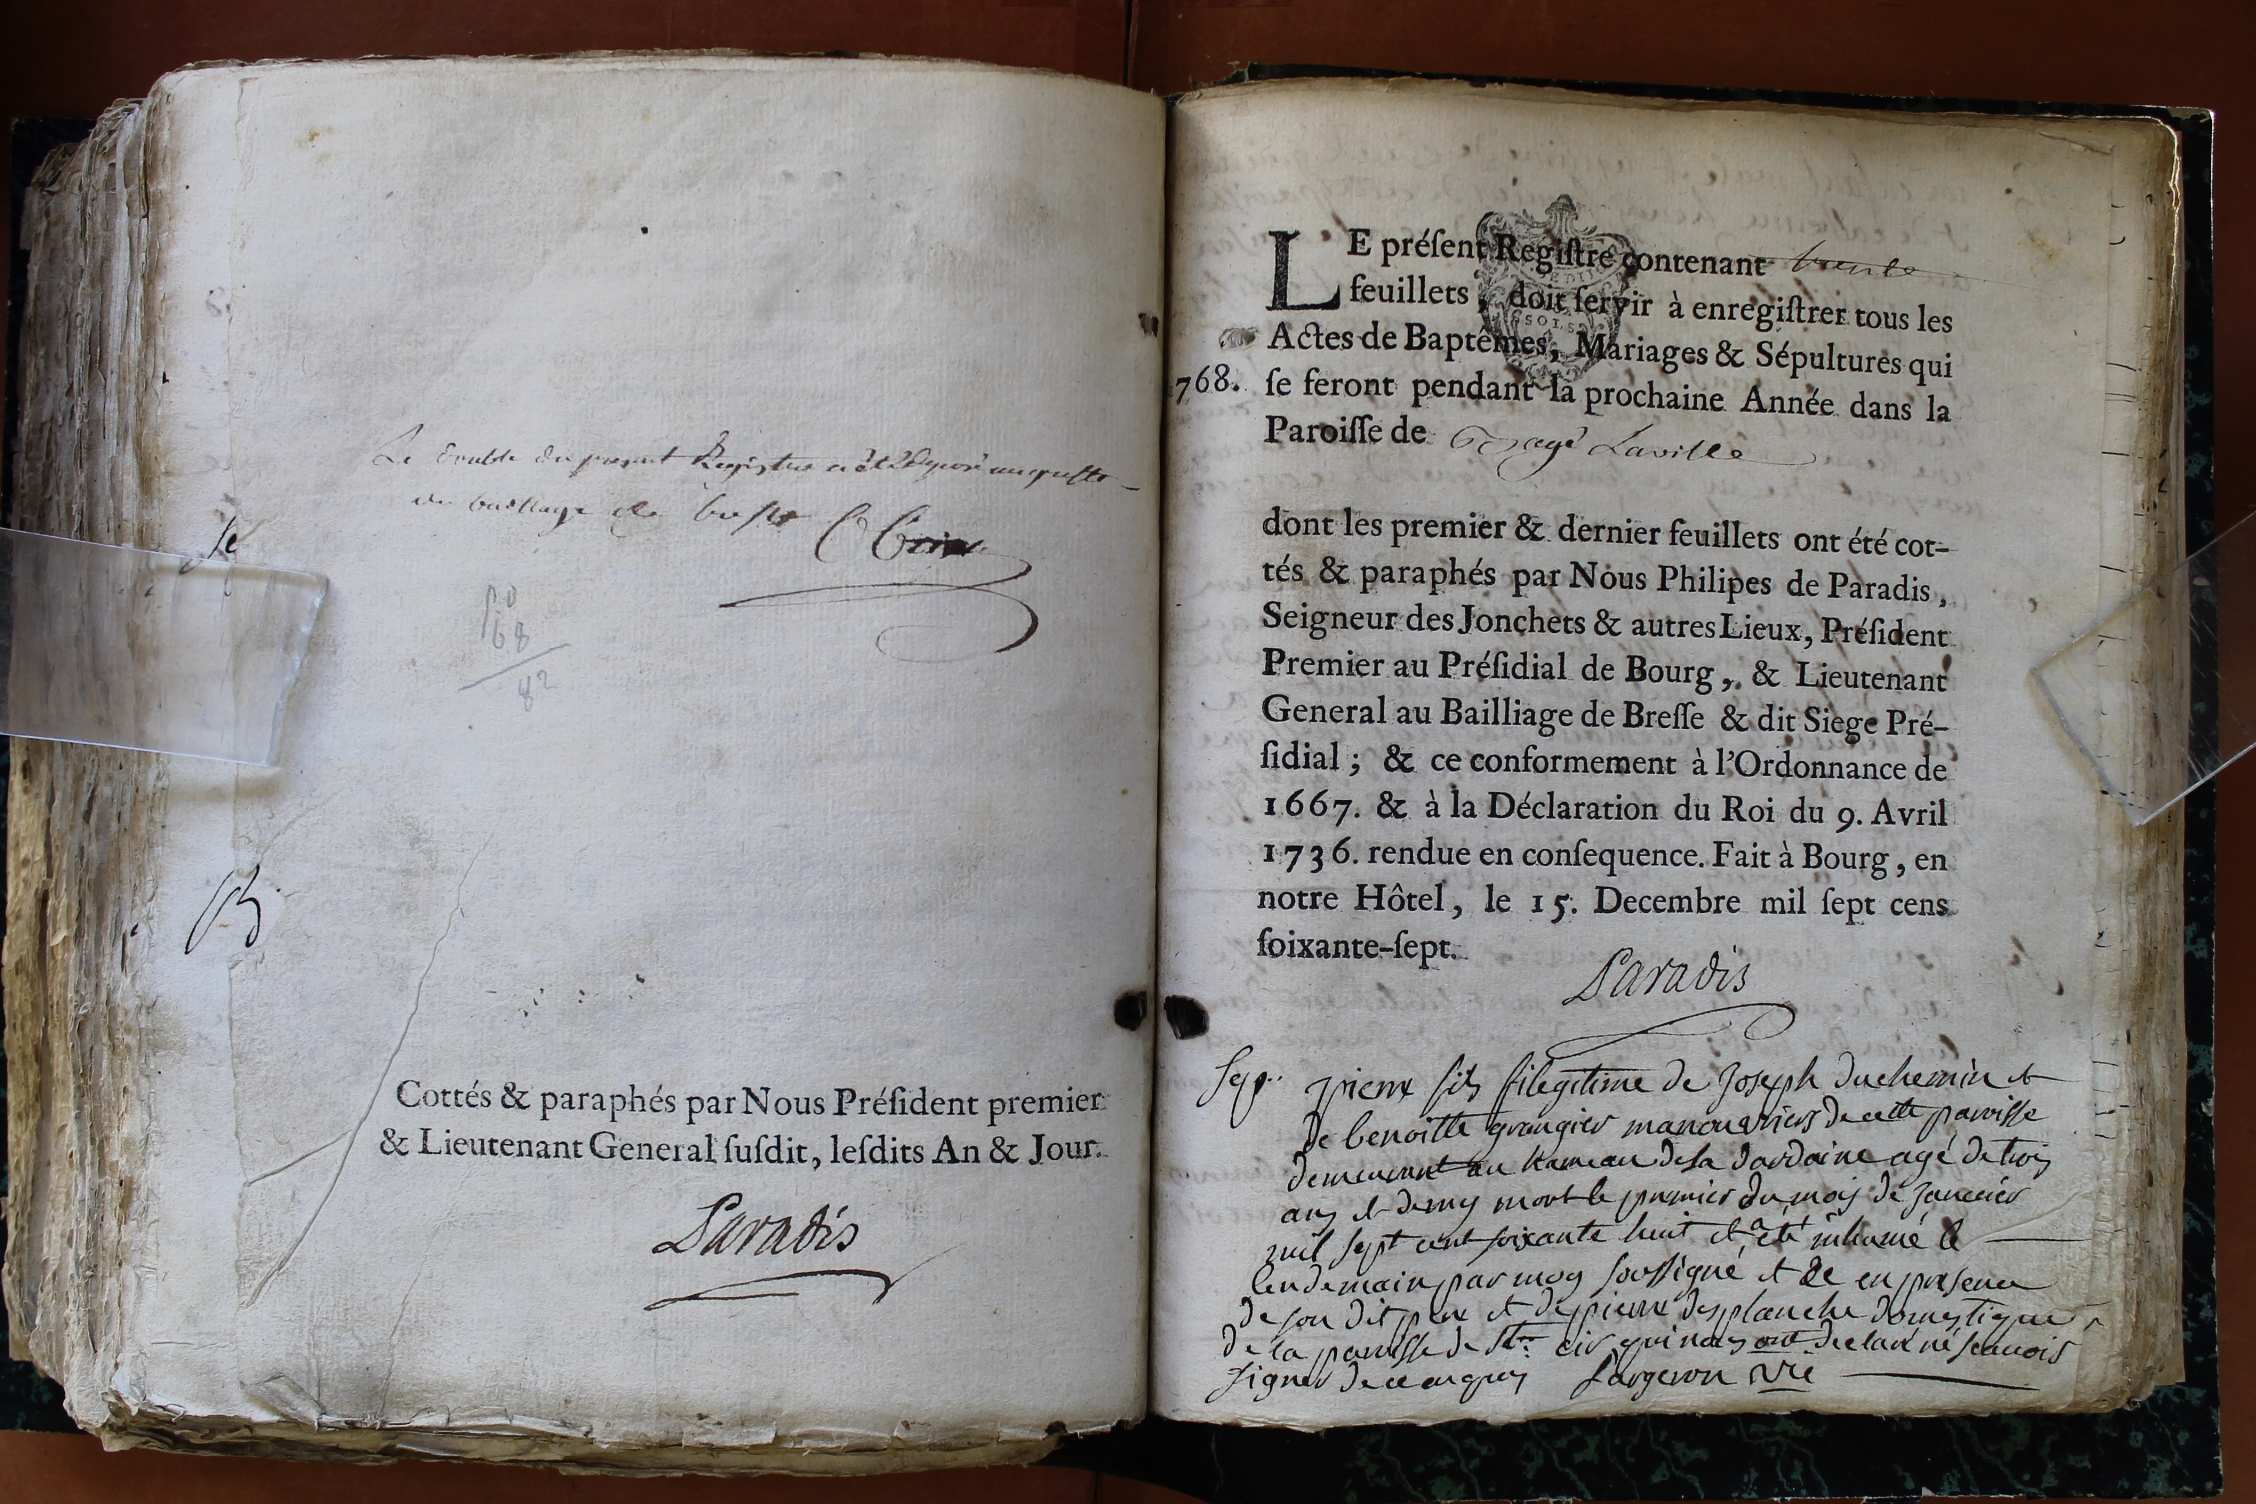 Le double du present Registre a été déposé au greffe
du bailliage de bresse
Cottés & paraphés par Nous Préſident premier
& Lieutenant General ſuſdit, leſdits An & Jour.
Paradis
LE préſent Regiſtre contenant trente
feuillets, doit ſervir à enregiſtrer tous les
Actes de Baptêmes, Mariages & Sépultures qui
1768. ſe feront pendant la prochaine Année dans la
Paroiſſe de Bagé Laville
dont les premier & dernier feuillets ont été cot-
tés & paraphés par Nous Philipes de Paradis,
Seigneur des Jonchets & autres Lieux, Préſident
Premier au Préſidial de Bourg, & Lieutenant
General au Bailliage de Breſſe & dit Siege Pré-
ſidial ; & ce conformement à l'Ordonnance de
1667. & à la Déclaration du Roi du 9. Avril
1736. rendue en conſequence. Fait à Bourg, en
notre Hôtel, le 15. Decembre mil ſept cens
ſoixante-ſept.
Paradis
Sep. pierre fils légitime de Joseph duchemin et
de benoitte grangier manouvriers de cette paroisse
demeurant au hameau de la dardaine agé de trois
ans et demy mort le premier du mois de Janvier
mil sept cent soixante huit et a été inhumé le
lendemain par moy soussigné et ce en presence
de son dit pere et de pierre desplanche domestique
de la paroisse de St cir qui nous ont declaré ne scavoir
signer de ce enquis Largeron vic